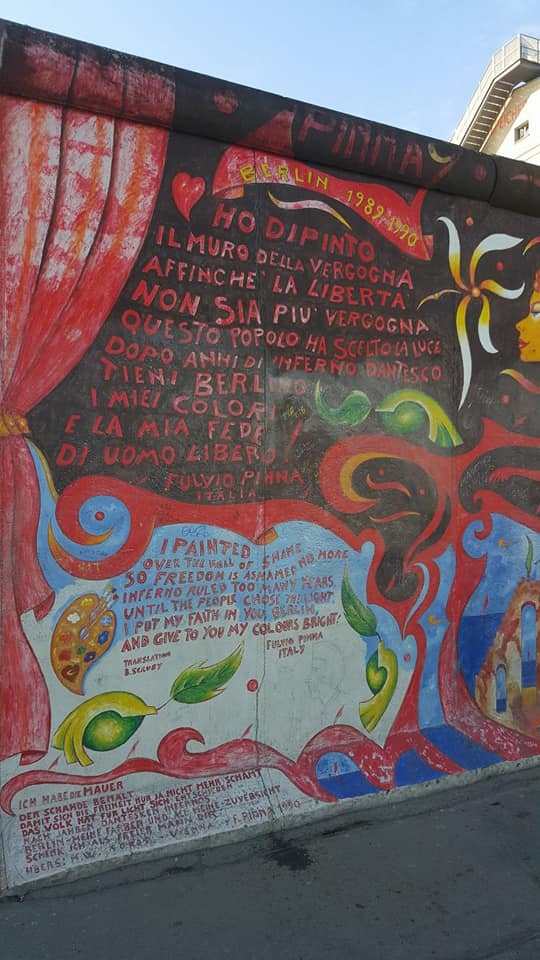 PINNA
BERLIN 1989-1990
HO DIPINTO
IL MURO DELLA VERGOGNA
AFFINCHE' LA LIBERTA'
NON SIA PIU' VERGOGNA
QUESTO POPOLO HA SCELTO LA LUCE
DOPO ANNI DI INFERNO DANTESCO.
TIENI BERLINO
I MIEI COLORI
E LA MIA FEDE
DI UOMO LIBERO!
FULVIO PINNA
ITALIA
I PAINTED
OVER THE WALL OF SHAME
SO FREEDOM IS ASHAMED NO MORE
INFERNO RULED TOO MANY YEARS
UNTIL THE PEOPLE CHOSE THE LIGHT.
I PUT MY FAITH IN YOU, BERLIN,
AND GIVE TO YOU MY COLOURS BRIGHT!
FULVIO PINNA
ITALY
TRANSLATION
B. SCRUBY
ICH HABE DIE MAUER
DER SCHANDE BEMALT
DAMIT SICH DIE FREIHEIT NUN JA NICHT MEHR SCHÄMT
DAS VOLK HAT FÜR LICHT SICH ENTSCHIEDEN
NACH JAHREN DANTESKEN INFERNOS
BERLIN-MEINE FARBEN UND ALL MEINE ZUVERSICHT
SCHENK ICH ALS FREIER MANN DIR
ÜBERS: H.W. VIENNA F. PINNA 1990